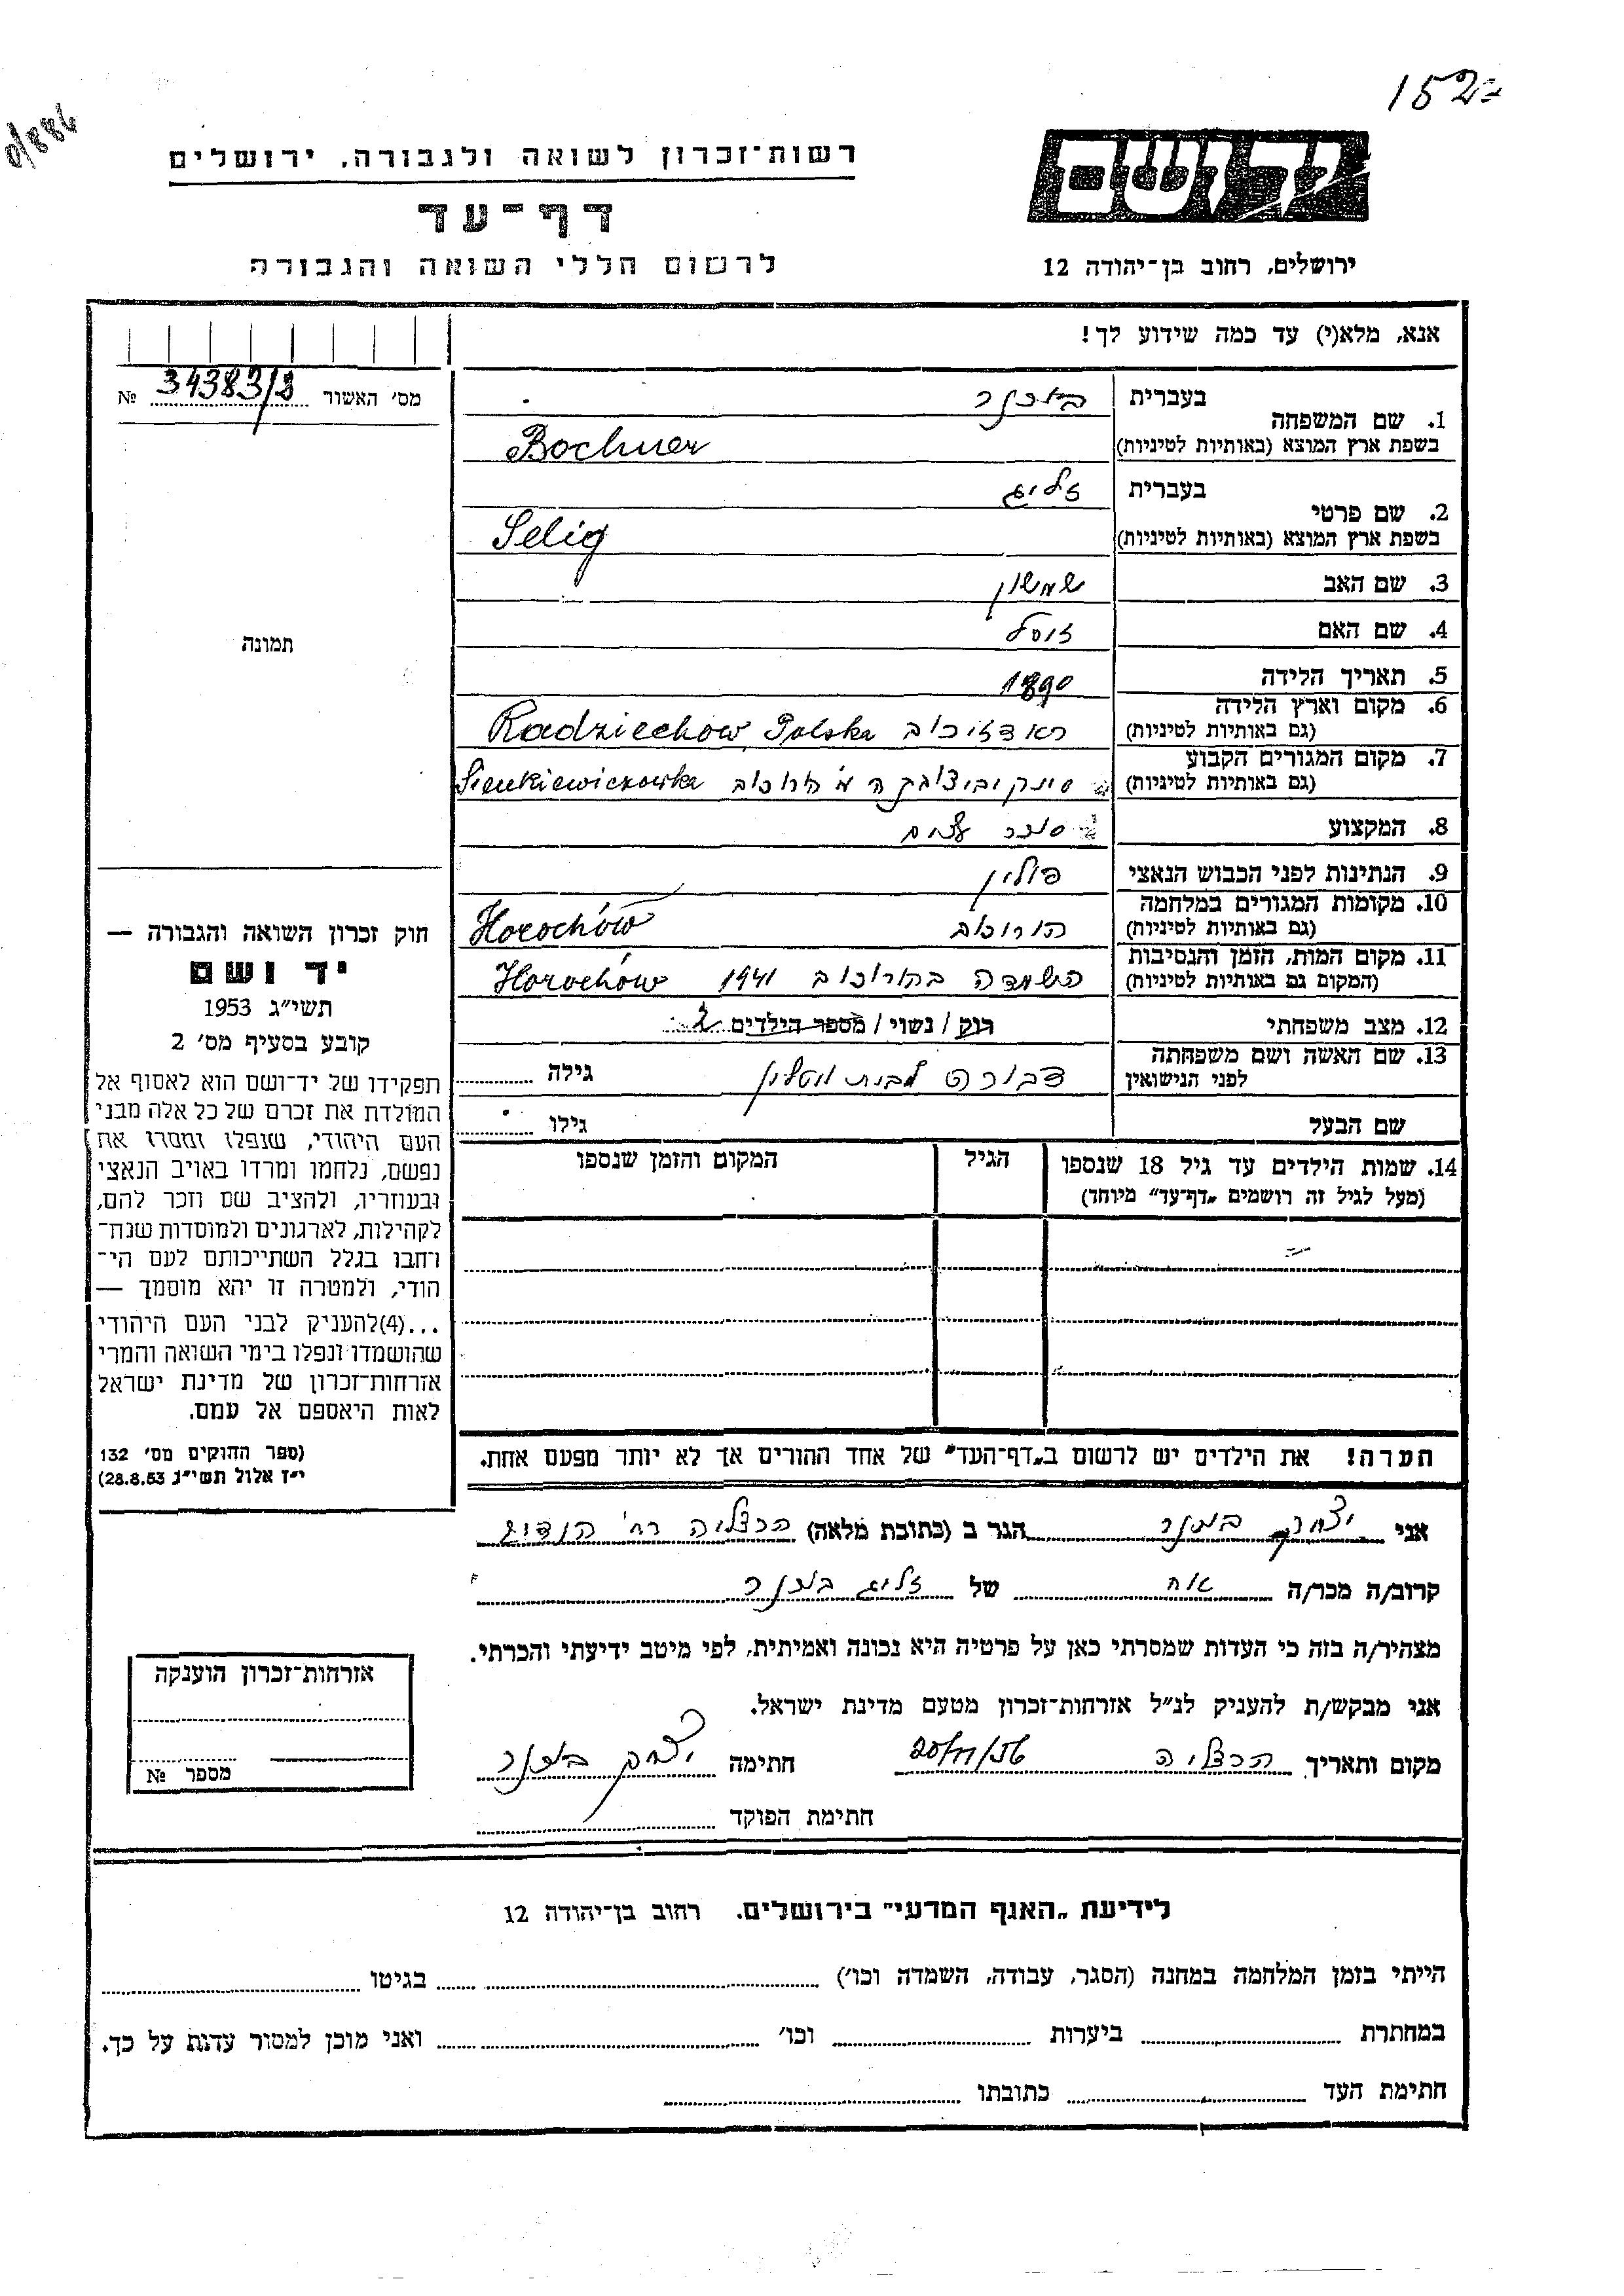 152
רשות־זכרון לשואה ולגבורה, ירושלים
דף־עד
לרשום חללי השואה והגבורה
יד ושם
ירושלים, רחוב בן־יהודה 12
אנא, מלא(י) עד כמה שידוע לך!
מס׳ האשור 34383/8 №
1. שם המשפחה
בעברית בוכנר
בשפת ארץ המוצא (באותיות לטיניות) Bochner
2. שם פרטי
בעברית זליג
בשפת ארץ המוצא (באותיות לטיניות) Selig
3. שם האב שמשון
4. שם האם
5. תאריך הלידה 1890
6. מקום וארץ הלידה
(גם באותיות לטיניות) ראדזיכוב Radziechów, Polska
7. מקום המגורים הקבוע
(גם באותיות לטיניות) Sienkiewiczowka הורוכוב
8. המקצוע סוחר עצים
9. הנתינות לפני הכבוש הנאצי פולין
10. מקומות המגורים במלחמה
(גם באותיות לטיניות) הורוכוב Horochów
11. מקום המות, הזמן והנסיבות
(המקום גם באותיות לטיניות) השמדה בהורוכוב 1941 Horochów
12. מצב משפחתי רוק / נשוי / מספר הילדים
13. שם האשה ושם משפחתה
לפני הנישואין דבורה לבית גילה
שם הבעל גילו
14. שמות הילדים עד גיל 18 שנספו הגיל המקום והזמן שנספו
(מעל לגיל זה רושמים „דף־עד״ מיוחד)
הערה! את הילדים יש לרשום ב„דף־העד״ של אחד ההורים אך לא יותר מפעם אחת.
תמונה
חוק זכרון השואה והגבורה —
יד ושם
תשי״ג 1953
קובע בסעיף מס׳ 2
תפקידו של יד־ושם הוא לאסוף אל
המולדת את זכרם של כל אלה מבני
העם היהודי, שנפלו ומסרו את
נפשם, נלחמו ומרדו באויב הנאצי
ובעוזריו, ולהציב שם וזכר להם,
לקהילות, לארגונים ולמוסדות שנח־
רחבו בגלל השתייכותם לעם הי־
הודי, ולמטרה זו יהא מוסמך —
...(4)להעניק לבני העם היהודי
שהושמדו ונפלו בימי השואה והמרי
אזרחות־זכרון של מדינת ישראל
לאות היאספם אל עמם.
(ספר החוקים מס׳ 132
י״ז אלול תשי״ג 28.8.53)
אני יצחק בוכנר הגר ב (כתובת מלאה) הרצליה רח׳
קרוב/ה מכר/ה אח של זליג בוכנר
מצהיר/ה בזה כי העדות שמסרתי כאן על פרטיה היא נכונה ואמיתית, לפי מיטב ידיעתי והכרתי.
אני מבקש/ת להעניק לנ״ל אזרחות־זכרון מטעם מדינת ישראל.
מקום ותאריך הרצליה 20/11/56 חתימה יצחק בוכנר
חתימת הפוקד
אזרחות־זכרון הוענקה
מספר №
לידיעת „האגף המדעי״ בירושלים. רחוב בן־יהודה 12
הייתי בזמן המלחמה במחנה (הסגר, עבודה, השמדה וכו׳) בגיטו
במחתרת ביערות וכו׳ ואני מוכן למסור עדות על כך.
חתימת העד כתובתו